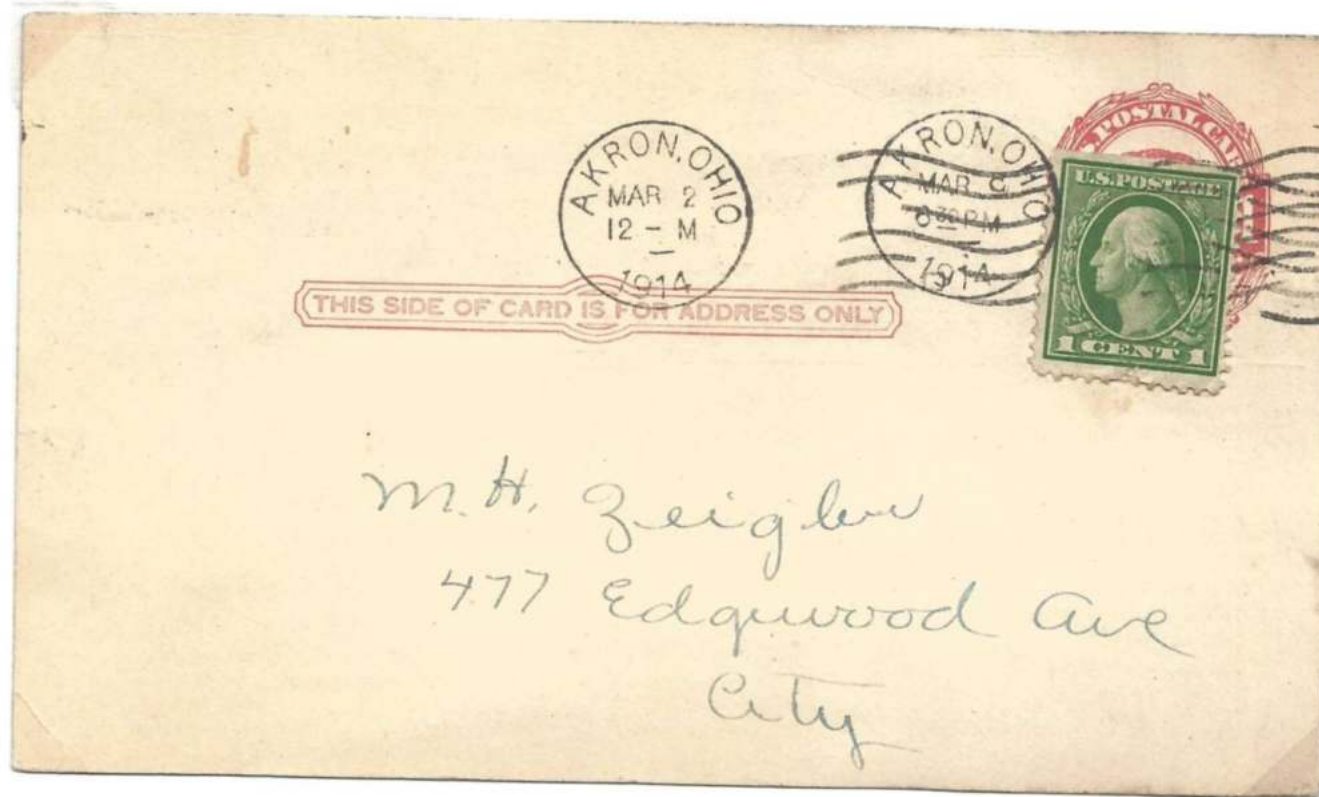 POSTAL CAR
AKRON, OHIO
MAR 2
12 - M
1914
AKRON, OHIO
MAR
30 PM
1914
U.S. POSTAGE
1 CENT 1
THIS SIDE OF CARD IS FOR ADDRESS ONLY
M. H. Zeigler
477 Edgewood Ave
City